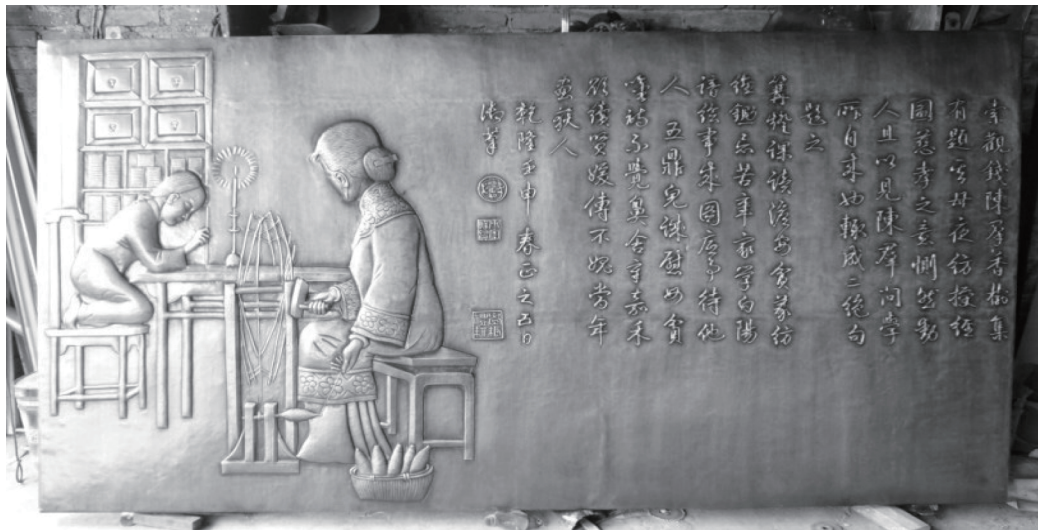 觀錢陳群香樹集
有題其母夜紡授經
圖慈孝之意惻然動
人且以見陳群問學
所自來也輒成二絕句
題之
篝燈課讀澹安貧義紡
經鋤忘苦辛家學白陽
諳繪事成圖底事待他
人 五鼎兒誠慰母貧
吟詩不覺鼻含辛嘉禾
欲續賢媛傳不媿當年
畫荻人
乾隆壬申春正之五日
御筆